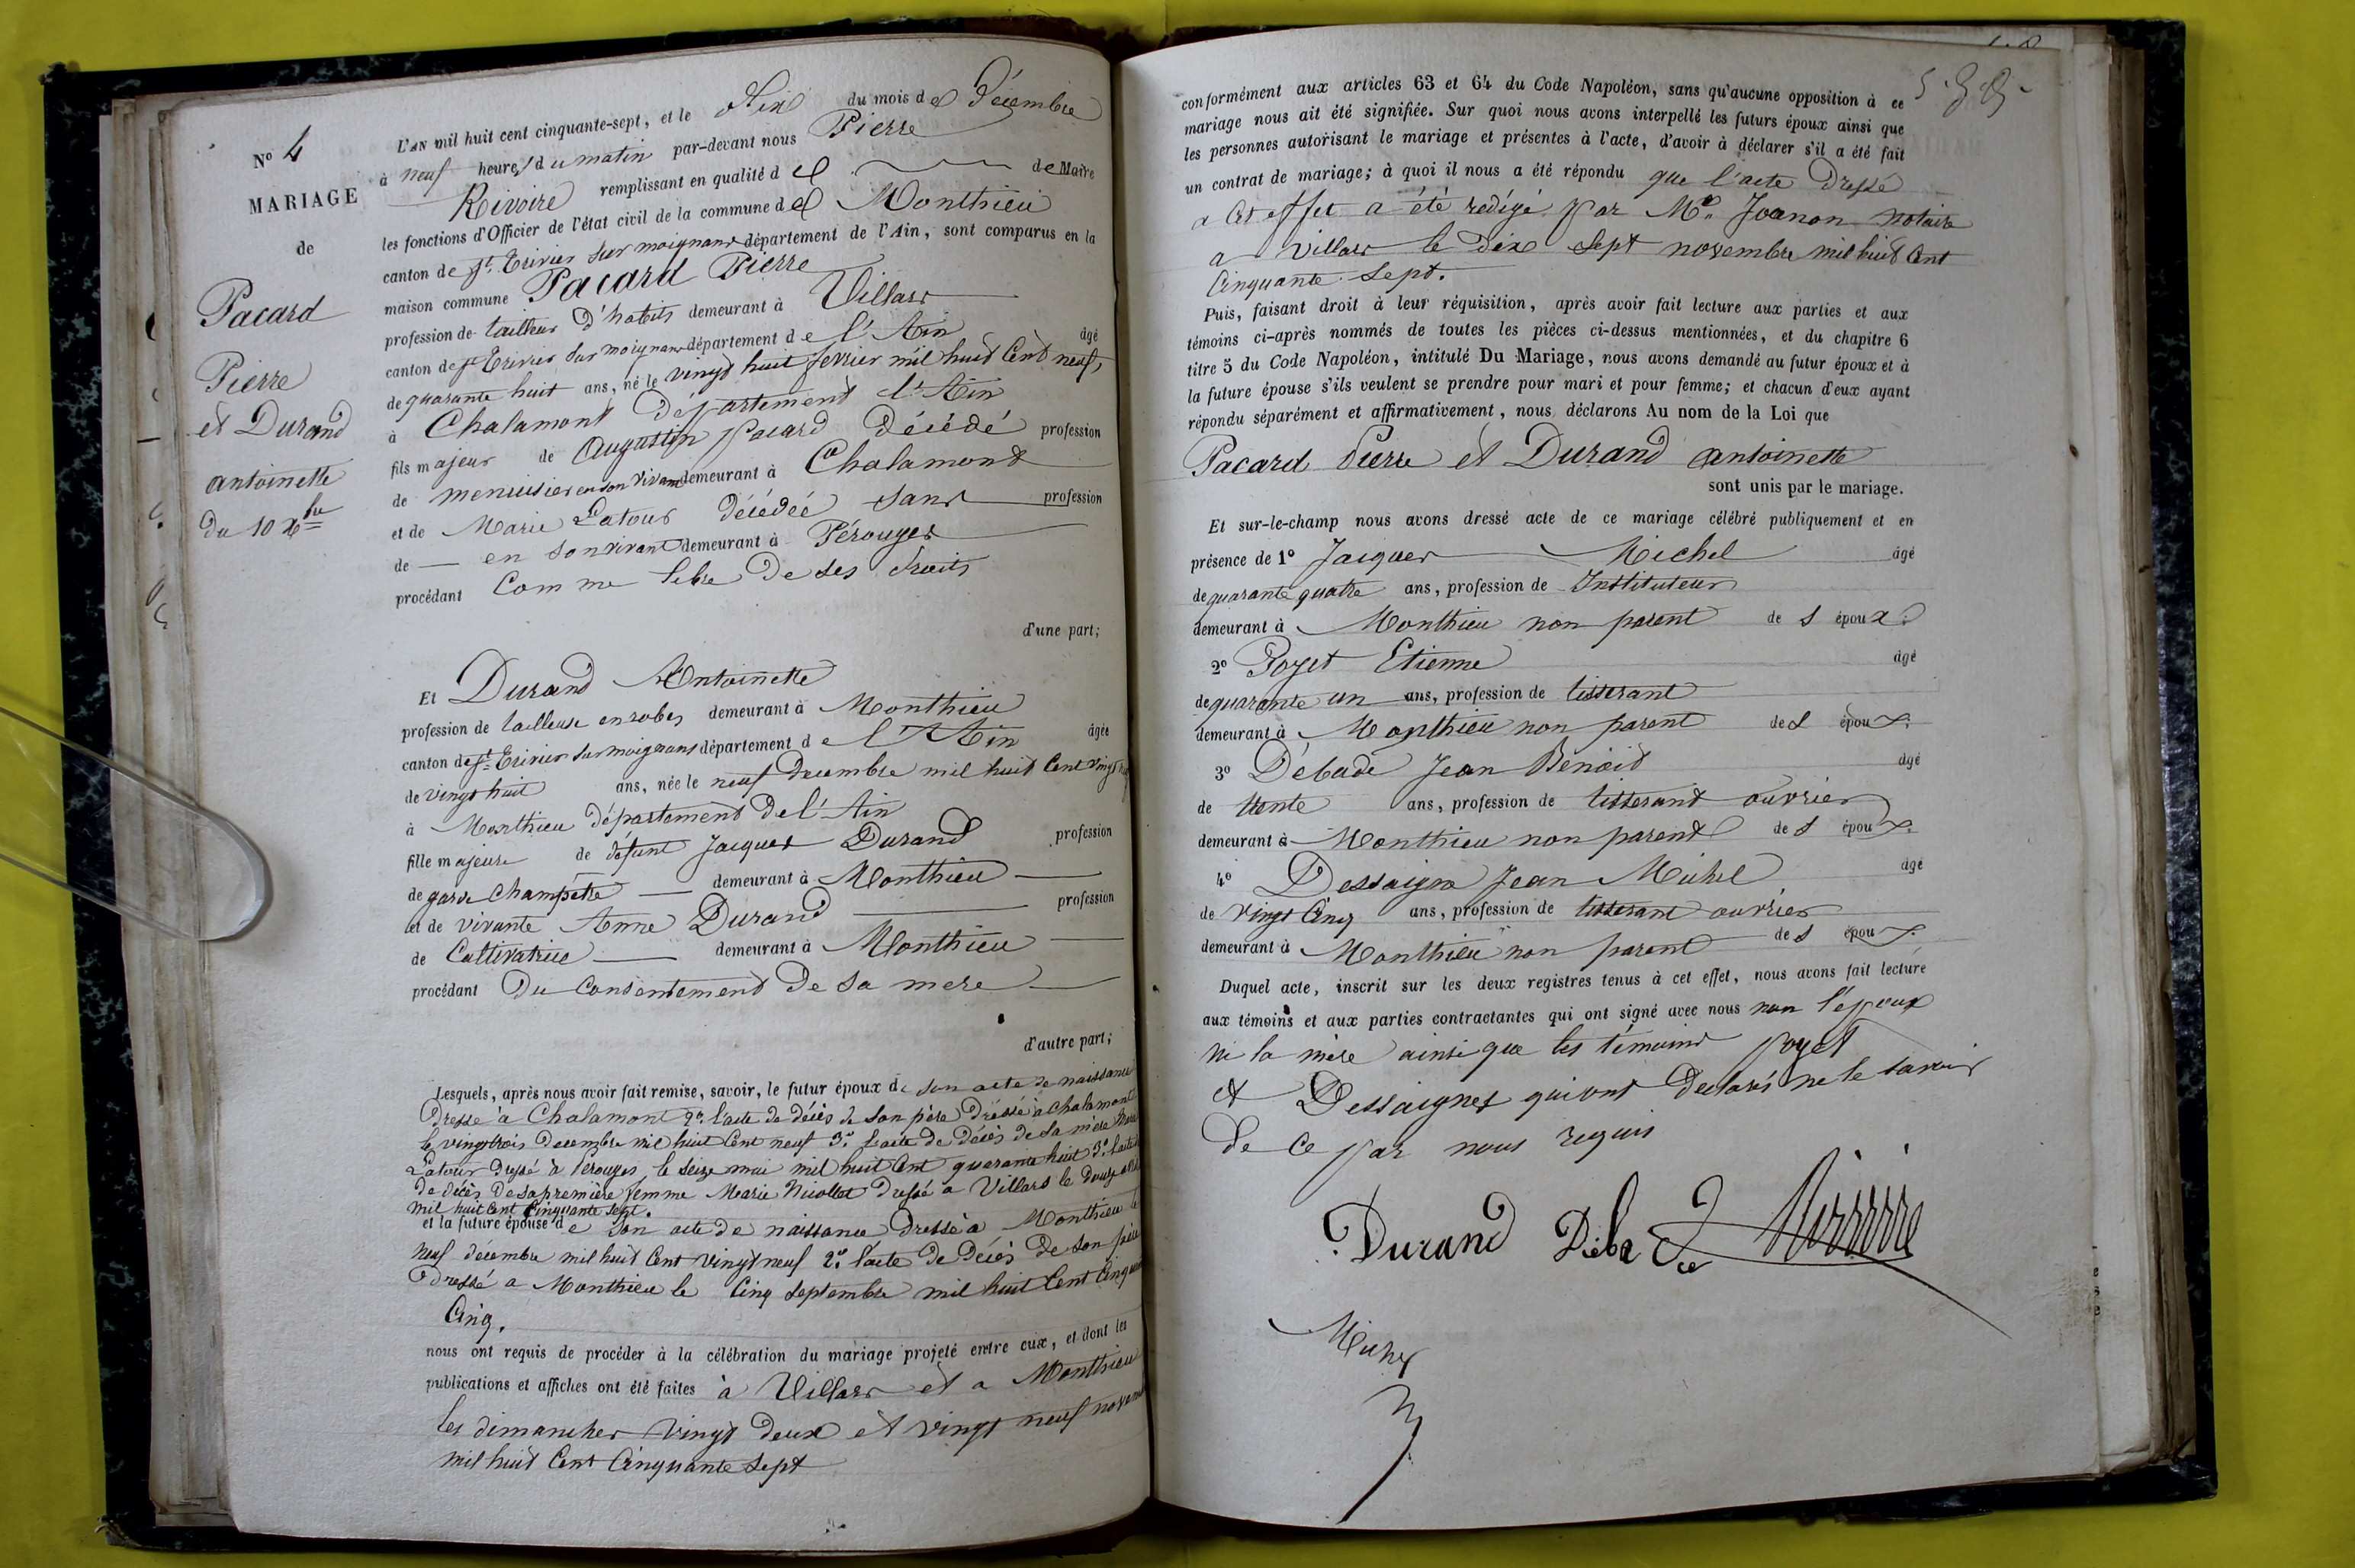 N° 4
MARIAGE
de
Pacard
Pierre
et Durand
antoinette
Du 10 Xbre
L'AN mil huit cent cinquante-sept, et le dix du mois de Décembre
à neuf heures du matin par-devant nous Pierre
Rivoire remplissant en qualité de de Maire
les fonctions d'Officier de l'état civil de la commune de Monthieu
canton de St. Trivier sur moignans département de l'Ain, sont comparus en la
maison commune Pacard Pierre
profession de tailleur d'habits demeurant à Villars
canton de St Trivier sur moignans département de l'Ain âgé
de quarante huit ans, né le vingt huit fevrier mil huit Cent neuf
à Chalamont département de l'Ain
fils majeur de Augustin pacard Décédé profession
de menuisier en son vivant demeurant à Chalamont
et de Marie Latour décédée sans profession
de — en son vivant demeurant à Pérouges
procédant Comme libre De ses droits
d'une part;
Et Durand Antoinette
profession de tailleuse en robes demeurant à Monthieu
canton de St Trivier sur moignans département de l'Ain âgée
de vingt huit ans, née le neuf Decembre mil huit Cent vingt
à Monthieu département de l'Ain
fille majeure de défunt Jacques Durand profession
de garde champêtre — demeurant à Monthieu
et de vivante Anne Durand profession
de Cultivatrice — demeurant à Monthieu
procédant Du Consentement De sa mere
d'autre part;
Lesquels, après nous avoir fait remise, savoir, le futur époux de son acte de naissance
Dressé à Chalamont 2° l'acte de décès de son père Dressé à Chalamont
le vingt trois Decembre mil huit Cent neuf 3° l'acte de Décès de sa mère
Latour Dressé à Pérouges le seize mai mil huit Cent quarante huit 3° l'acte
de décès De sa première femme Marie Nicollet Dressé a Villars le Douze
mil huit Cent Cinquante Sept.
et la future épouse de son acte de naissance Dressé à Monthieu le
neuf décembre mil huit Cent vingt neuf 2° l'acte de Décès De son père
dressé a Monthieu le Cinq Septembre mil huit Cent Cinquante
Cinq.
nous ont requis de procéder à la célébration du mariage projeté entre eux, et dont les
publications et affiches ont été faites à Villars et a Monthieu
les dimanches vingt Deux et vingt neuf novembre
mil huit Cent Cinquante Sept
conformément aux articles 63 et 64 du Code Napoléon, sans qu'aucune opposition à ce
mariage nous ait été signifiée. Sur quoi nous avons interpellé les futurs époux ainsi que
les personnes autorisant le mariage et présentes à l'acte, d'avoir à déclarer s'il a été fait
un contrat de mariage; à quoi il nous a été répondu que l'acte Dressé
a cet effet a été redigé par Me. Joanon notaire
a Villars le Dix Sept novembre mil huit Cent
Cinquante Sept.
Puis, faisant droit à leur réquisition, après avoir fait lecture aux parties et aux
témoins ci-après nommés de toutes les pièces ci-dessus mentionnées, et du chapitre 6
titre 5 du Code Napoléon, intitulé Du Mariage, nous avons demandé au futur époux et à
la future épouse s'ils veulent se prendre pour mari et pour femme; et chacun d'eux ayant
répondu séparément et affirmativement, nous déclarons Au nom de la Loi que
Pacard Pierre et Durand antoinette
sont unis par le mariage.
Et sur-le-champ nous avons dressé acte de ce mariage célébré publiquement et en
présence de 1° Jacques Michel âgé
de quarante quatre ans, profession de Instituteur
demeurant à Monthieu non parent des époux.
2° Poyet Etienne âgé
de quarante un ans, profession de tisserant
demeurant à Monthieu non parent des époux.
3° Débade Jean Benoit âgé
de trente ans, profession de tisserant ouvrier
demeurant à Monthieu non parent des époux.
4° Dessaigne Jean Michel âgé
de vingt Cinq ans, profession de tisserant ouvrier
demeurant à Monthieu non parent des époux.
Duquel acte, inscrit sur les deux registres tenus à cet effet, nous avons fait lecture
aux témoins et aux parties contractantes qui ont signé avec nous non l'époux
ni la mère ainsi que les témoins poyet
et Dessaignes qui ont Declaré ne le savoir
De Ce par nous requis
Durand Déba De Rivoire
Michel